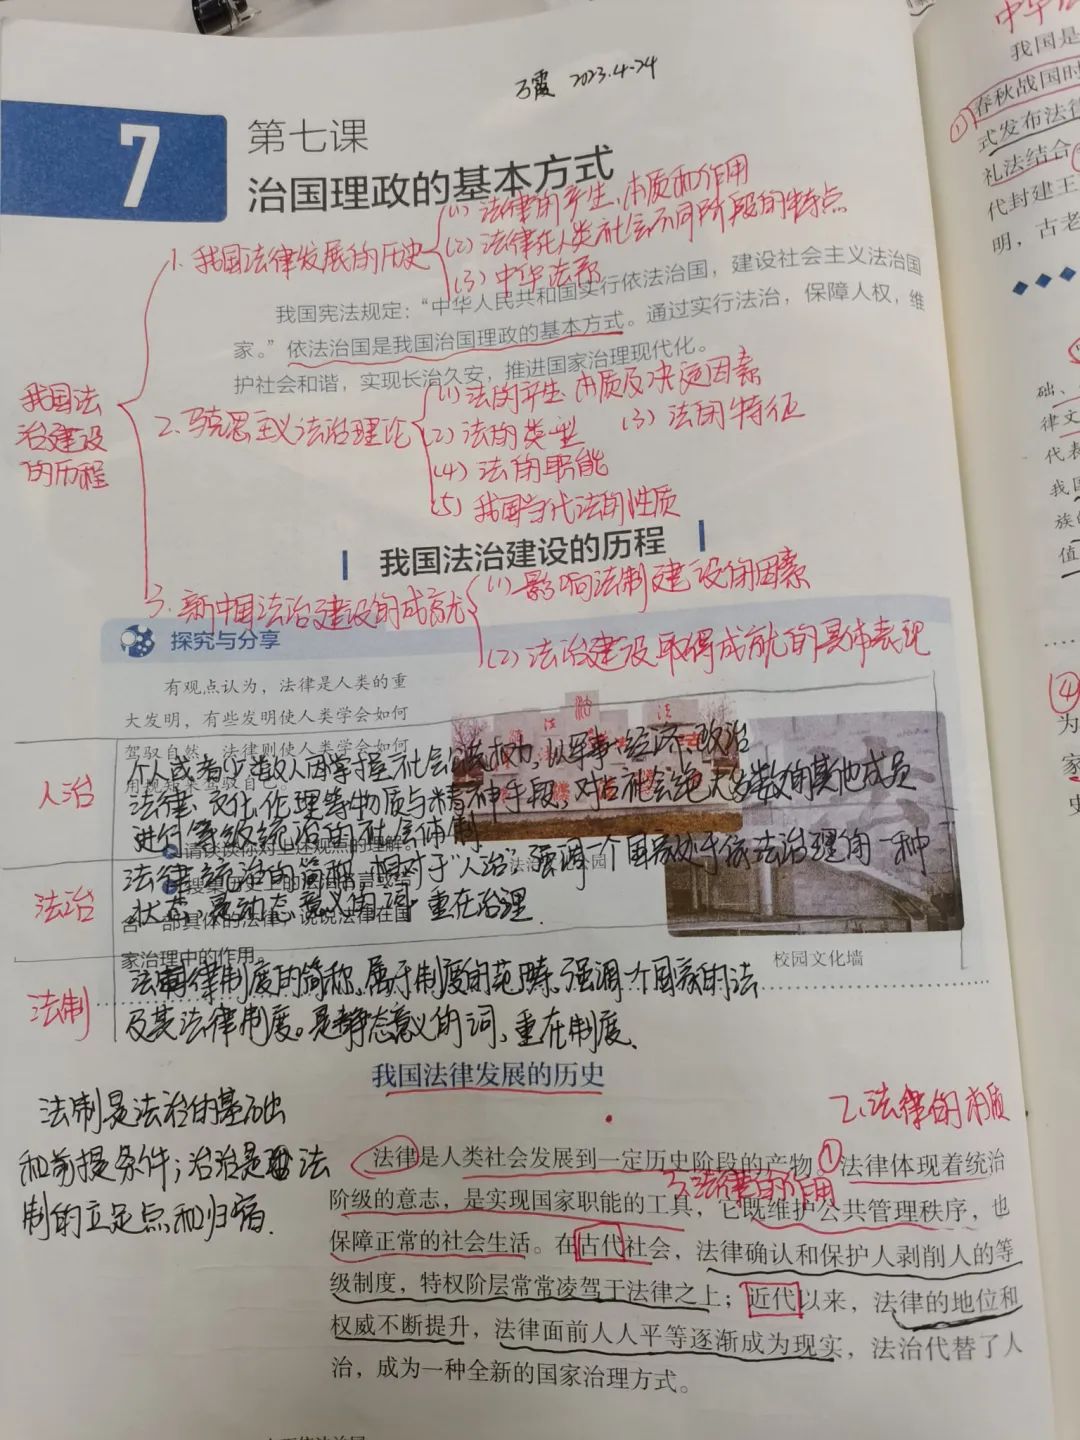 2023.4.24
7
第七课
治国理政的基本方式
1. 我国法律发展的历史
(1) 法律的产生、本质和作用
(2) 法律在人类社会不同阶段的特点
(3) 中华法系
我国宪法规定：“中华人民共和国实行依法治国，建设社会主义法治国
家。”依法治国是我国治国理政的基本方式。通过实行法治，保障人权，维
护社会和谐，实现长治久安，推进国家治理现代化。
我国法
治建设
的历程
2. 马克思主义法治理论
(1) 法的产生、本质及决定因素
(2) 法的类型
(3) 法的特征
(4) 法的职能
(5) 我国当代法的性质
我国法治建设的历程
3. 新中国法治建设的成就
(1) 影响法制建设的因素
(2) 法治建设取得成就的具体表现
探究与分享
有观点认为，法律是人类的重
大发明，有些发明使人类学会如何
驾驭自然，法律则使人类学会如何
驾驭自己。
请谈谈你对上述观点的理解。
家治理中的作用。
校园文化墙
人治
个人或者少数人因掌握社会公共权力，以军事、经济、政治
法律、文化、伦理等物质与精神手段，对占社会绝大多数的其他成员
进行等级统治的社会体制
法治
法律统治的简称，相对于“人治”，强调一个国家处于依法治理的一种
状态，是动态意义的词，重在治理.
法制
法律制度的简称，属于制度的范畴，强调一个国家的法
及其法律制度。是静态意义的词，重在制度.
我国法律发展的历史
法制是法治的基础
和前提条件；法治是法
制的立足点和归宿.
2.法律的本质
3.法律的作用
法律是人类社会发展到一定历史阶段的产物。①法律体现着统治
阶级的意志，是实现国家职能的工具，它既维护公共管理秩序，也
保障正常的社会生活。在古代社会，法律确认和保护人剥削人的等
级制度，特权阶层常常凌驾于法律之上；近代以来，法律的地位和
权威不断提升，法律面前人人平等逐渐成为现实，法治代替了人
治，成为一种全新的国家治理方式。
我国是
①春秋战国时
式发布法律
礼法结合
代封建王
明，古老
础、
律文
代表
我国
族的
值
④
为
家
史